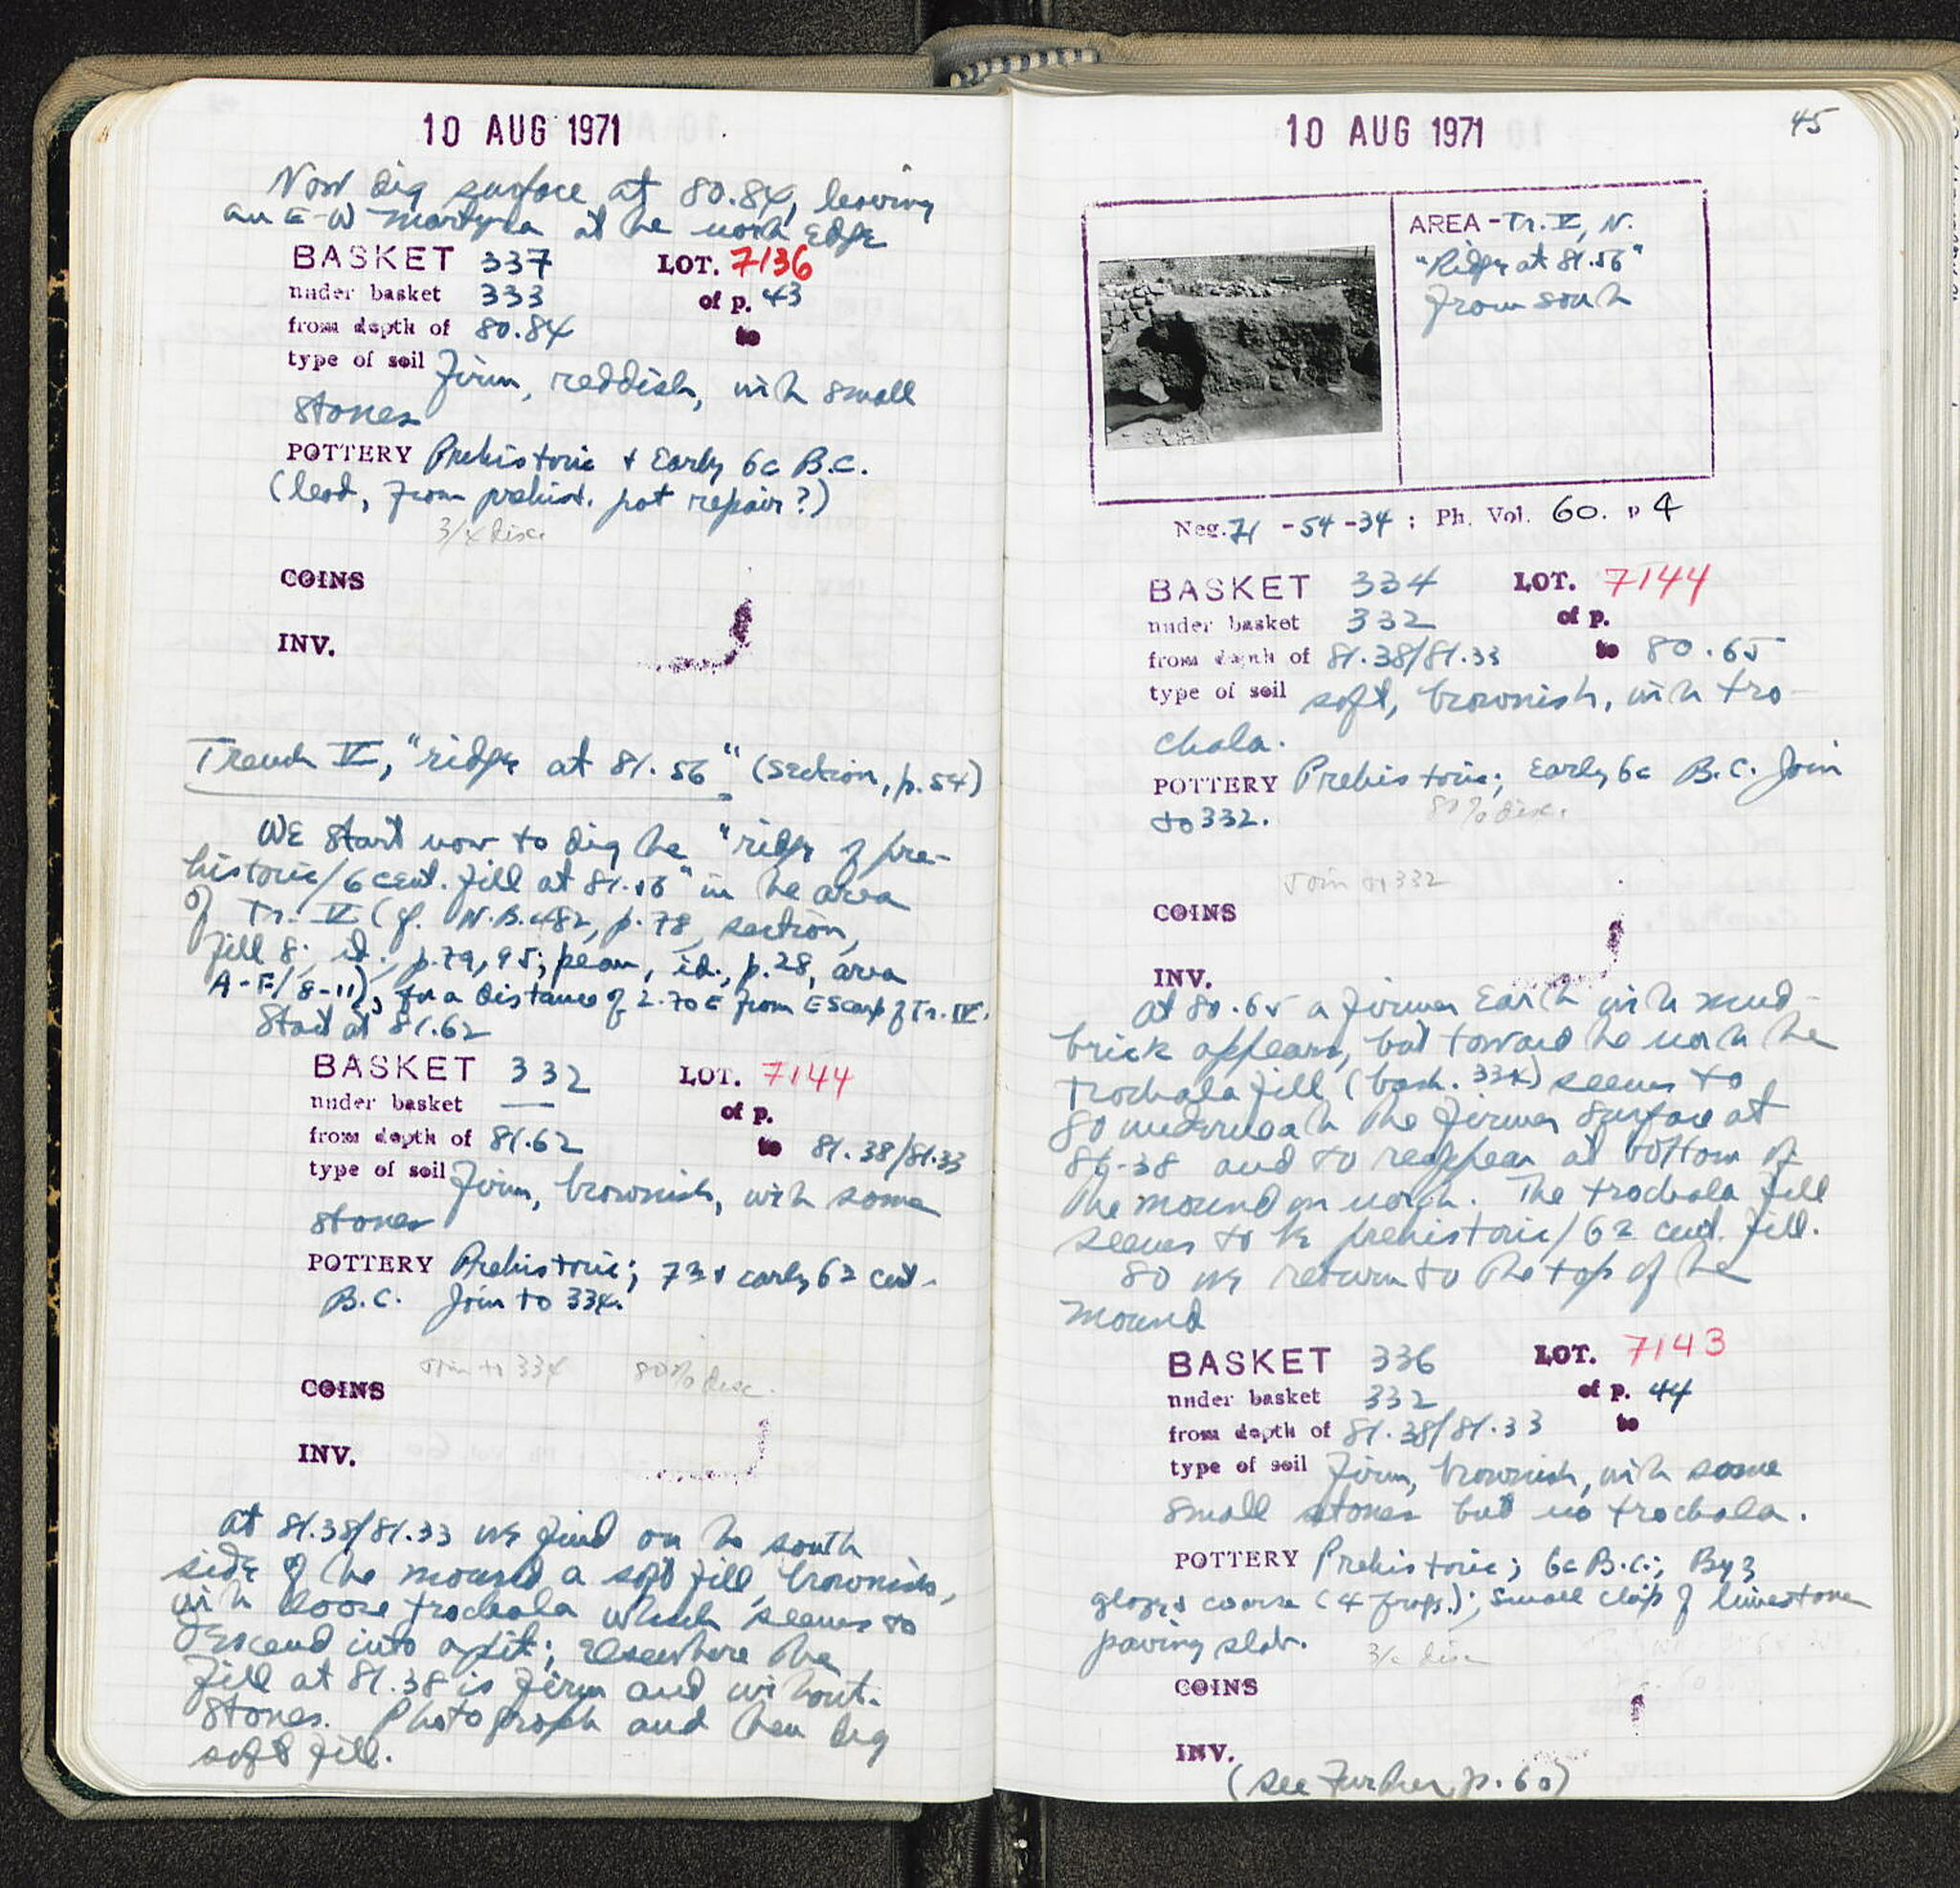 10 AUG 1971
Now dig surface at 80.84, leaving
an E-W martyra at he north edge
BASKET 337 LOT. 7136
under basket 333 of p. 43
from depth of 80.84 to
type of soil Firm, reddish, with small
stones
POTTERY Prehistoric + Early 6c B.C.
(lead, from prehist. pot repair?)
3/4 disc.
COINS
INV.
Trench V, "ridge at 81.56" (section, p. 54)
WE start now to dig he "ridge of pre-
historic/6 cent. fill at 81.56" in he area
of Tr. V (cf. N.B. 482, p. 78, section,
fill 8; id., p. 79, 95; plan, id., p. 28, area
A-F/8-11), for a distance of 2.70 E from E scarp of Tr. IV.
Start at 81.62
BASKET 332 LOT. 7144
under basket — of p.
from depth of 81.62 to 81.38/81.33
type of soil Firm, brownish, with some
stones
POTTERY Prehistoric; 7th + early 6th cent.
B.C. Join to 334.
Join to 334 80% disc.
COINS
INV.
At 81.38/81.33 we find on he south
side of he mound a soft fill, brownish,
with loose trochala which seems to
descend into a pit; elsewhere the
fill at 81.38 is firm and without
stones. Photograph and then dig
soft fill.
10 AUG 1971 45
AREA - Tr. V, N.
"Ridge at 81.56"
from south
Neg. 71 - 54 - 34 ; Ph. Vol. 60. p 4
BASKET 334 LOT. 7144
under basket 332 of p.
from depth of 81.38/81.33 to 80.65
type of soil soft, brownish, with tro-
chala.
POTTERY Prehistoric; Early 6c B.C. Join
to 332.
80% disc.
Join to 332
COINS
INV.
At 80.65 a firmer earth with mud-
brick appears, but toward he north he
trochala fill (bask. 334) seems to
go underneath the firmer surface at
81.38 and to reappear at bottom of
the mound on north. The trochala fill
seems to be prehistoric/6th cent. fill.
So we return to the top of he
mound
BASKET 336 LOT. 7143
under basket 332 of p. 44
from depth of 81.38/81.33 to
type of soil Firm, brownish, with some
small stones but no trochala.
POTTERY Prehistoric; 6c B.C.; Byz
glazed coarse (4 frags.); small chip of limestone
paving slab.
3/4 disc
COINS
INV.
(see further, p. 60)